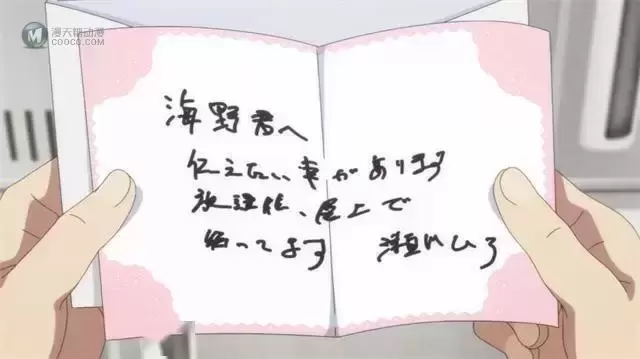 漫天翔动漫
COOCO.COM
海野君へ
伝えたい事があります
放課後、屋上で
待ってます 瀬川ひろ